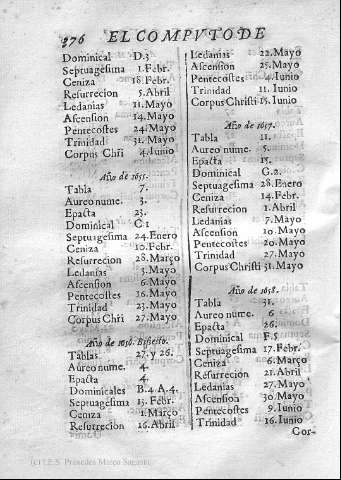 276 EL COMPVTO DE
Dominical D.3
Septuagesima 1.Febr.
Ceniza 18.Febr.
Resurrecion 5.Abril
Ledanias 11.Mayo
Ascension 14.Mayo
Pentecostes 24.Mayo
Trinidad 31.Mayo
Corpus Chri 4.Iunio
Año de 1655.
Tabla 7.
Aureo nume. 3.
Epacta 23.
Dominical C 1
Septuagesima 24.Enero
Ceniza 10.Febr.
Resurrecion 28.Março
Ledanias 3.Mayo
Ascension 6.Mayo
Pentecostes 16.Mayo
Trinidad 23.Mayo
Corpus Chri 27.Mayo
Año de 1656. Bisiesto.
Tablas 27.y 26.
Aureo nume. 4.
Epacta 4.
Dominicales B.4 A.4.
Septuagesima 13.Febr.
Ceniza 1.Março
Resurrecion 16.Abril
Ledanias 22.Mayo
Ascension 25.Mayo
Pentecostes 4.Iunio
Trinidad 11.Iunio
Corpus Christi 15.Iunio
Año de 1657.
Tabla 11.
Aureo nume. 5.
Epacta 15.
Dominical G.2.
Septuagesima 28.Enero
Ceniza 14.Febr.
Resurrecion 1.Abril
Ledanias 7.Mayo
Ascension 10.Mayo
Pentecostes 20.Mayo
Trinidad 27.Mayo
Corpus Christi 31.Mayo
Año de 1658.
Tabla 31.
Aureo nume. 6
Epacta 26.
Dominical F.5
Septuagesima 17.Febr.
Ceniza 6.Março
Resurrecion 21.Abril
Ledanias 27.Mayo
Ascension 30.Mayo
Pentecostes 9.Iunio
Trinidad 16.Iunio
Cor-